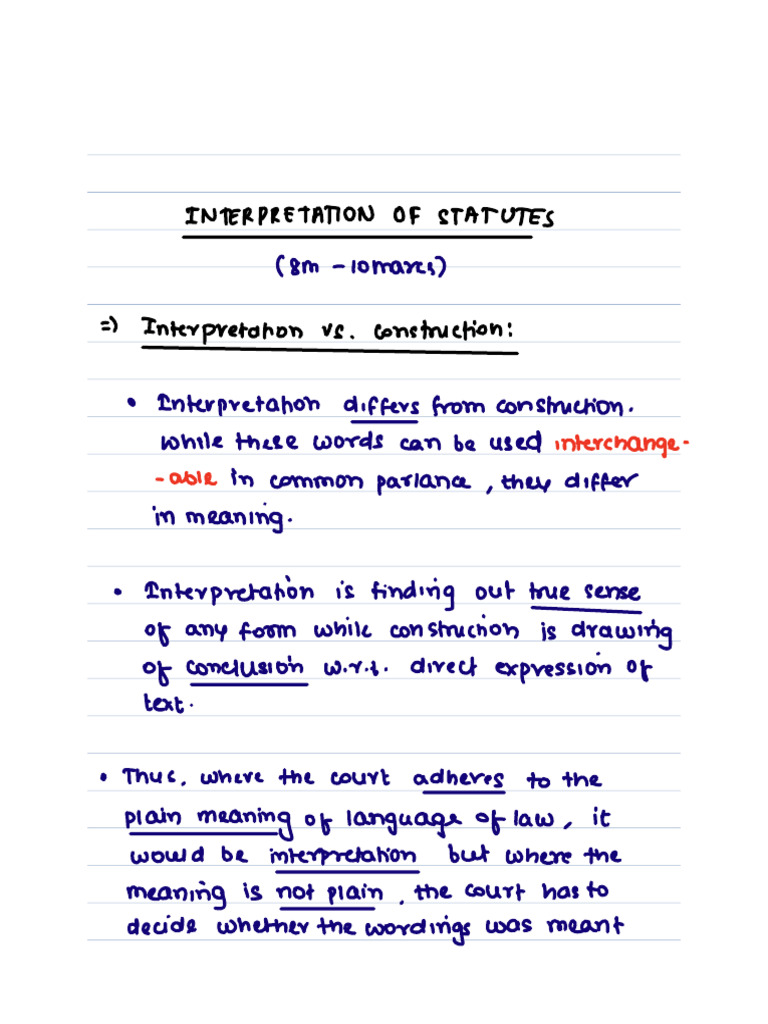 INTERPRETATION OF STATUTES
(8m - 10 marks)
=) Interpretation vs. construction:
• Interpretation differs from construction.
while these words can be used interchange-
-able in common parlance, they differ
in meaning.
• Interpretation is finding out true sense
of any form while construction is drawing
of conclusion w.r.t. direct expression of
text.
• Thus, where the court adheres to the
plain meaning of language of law, it
would be interpretation but where the
meaning is not plain, the court has to
decide whether the wordings was meant